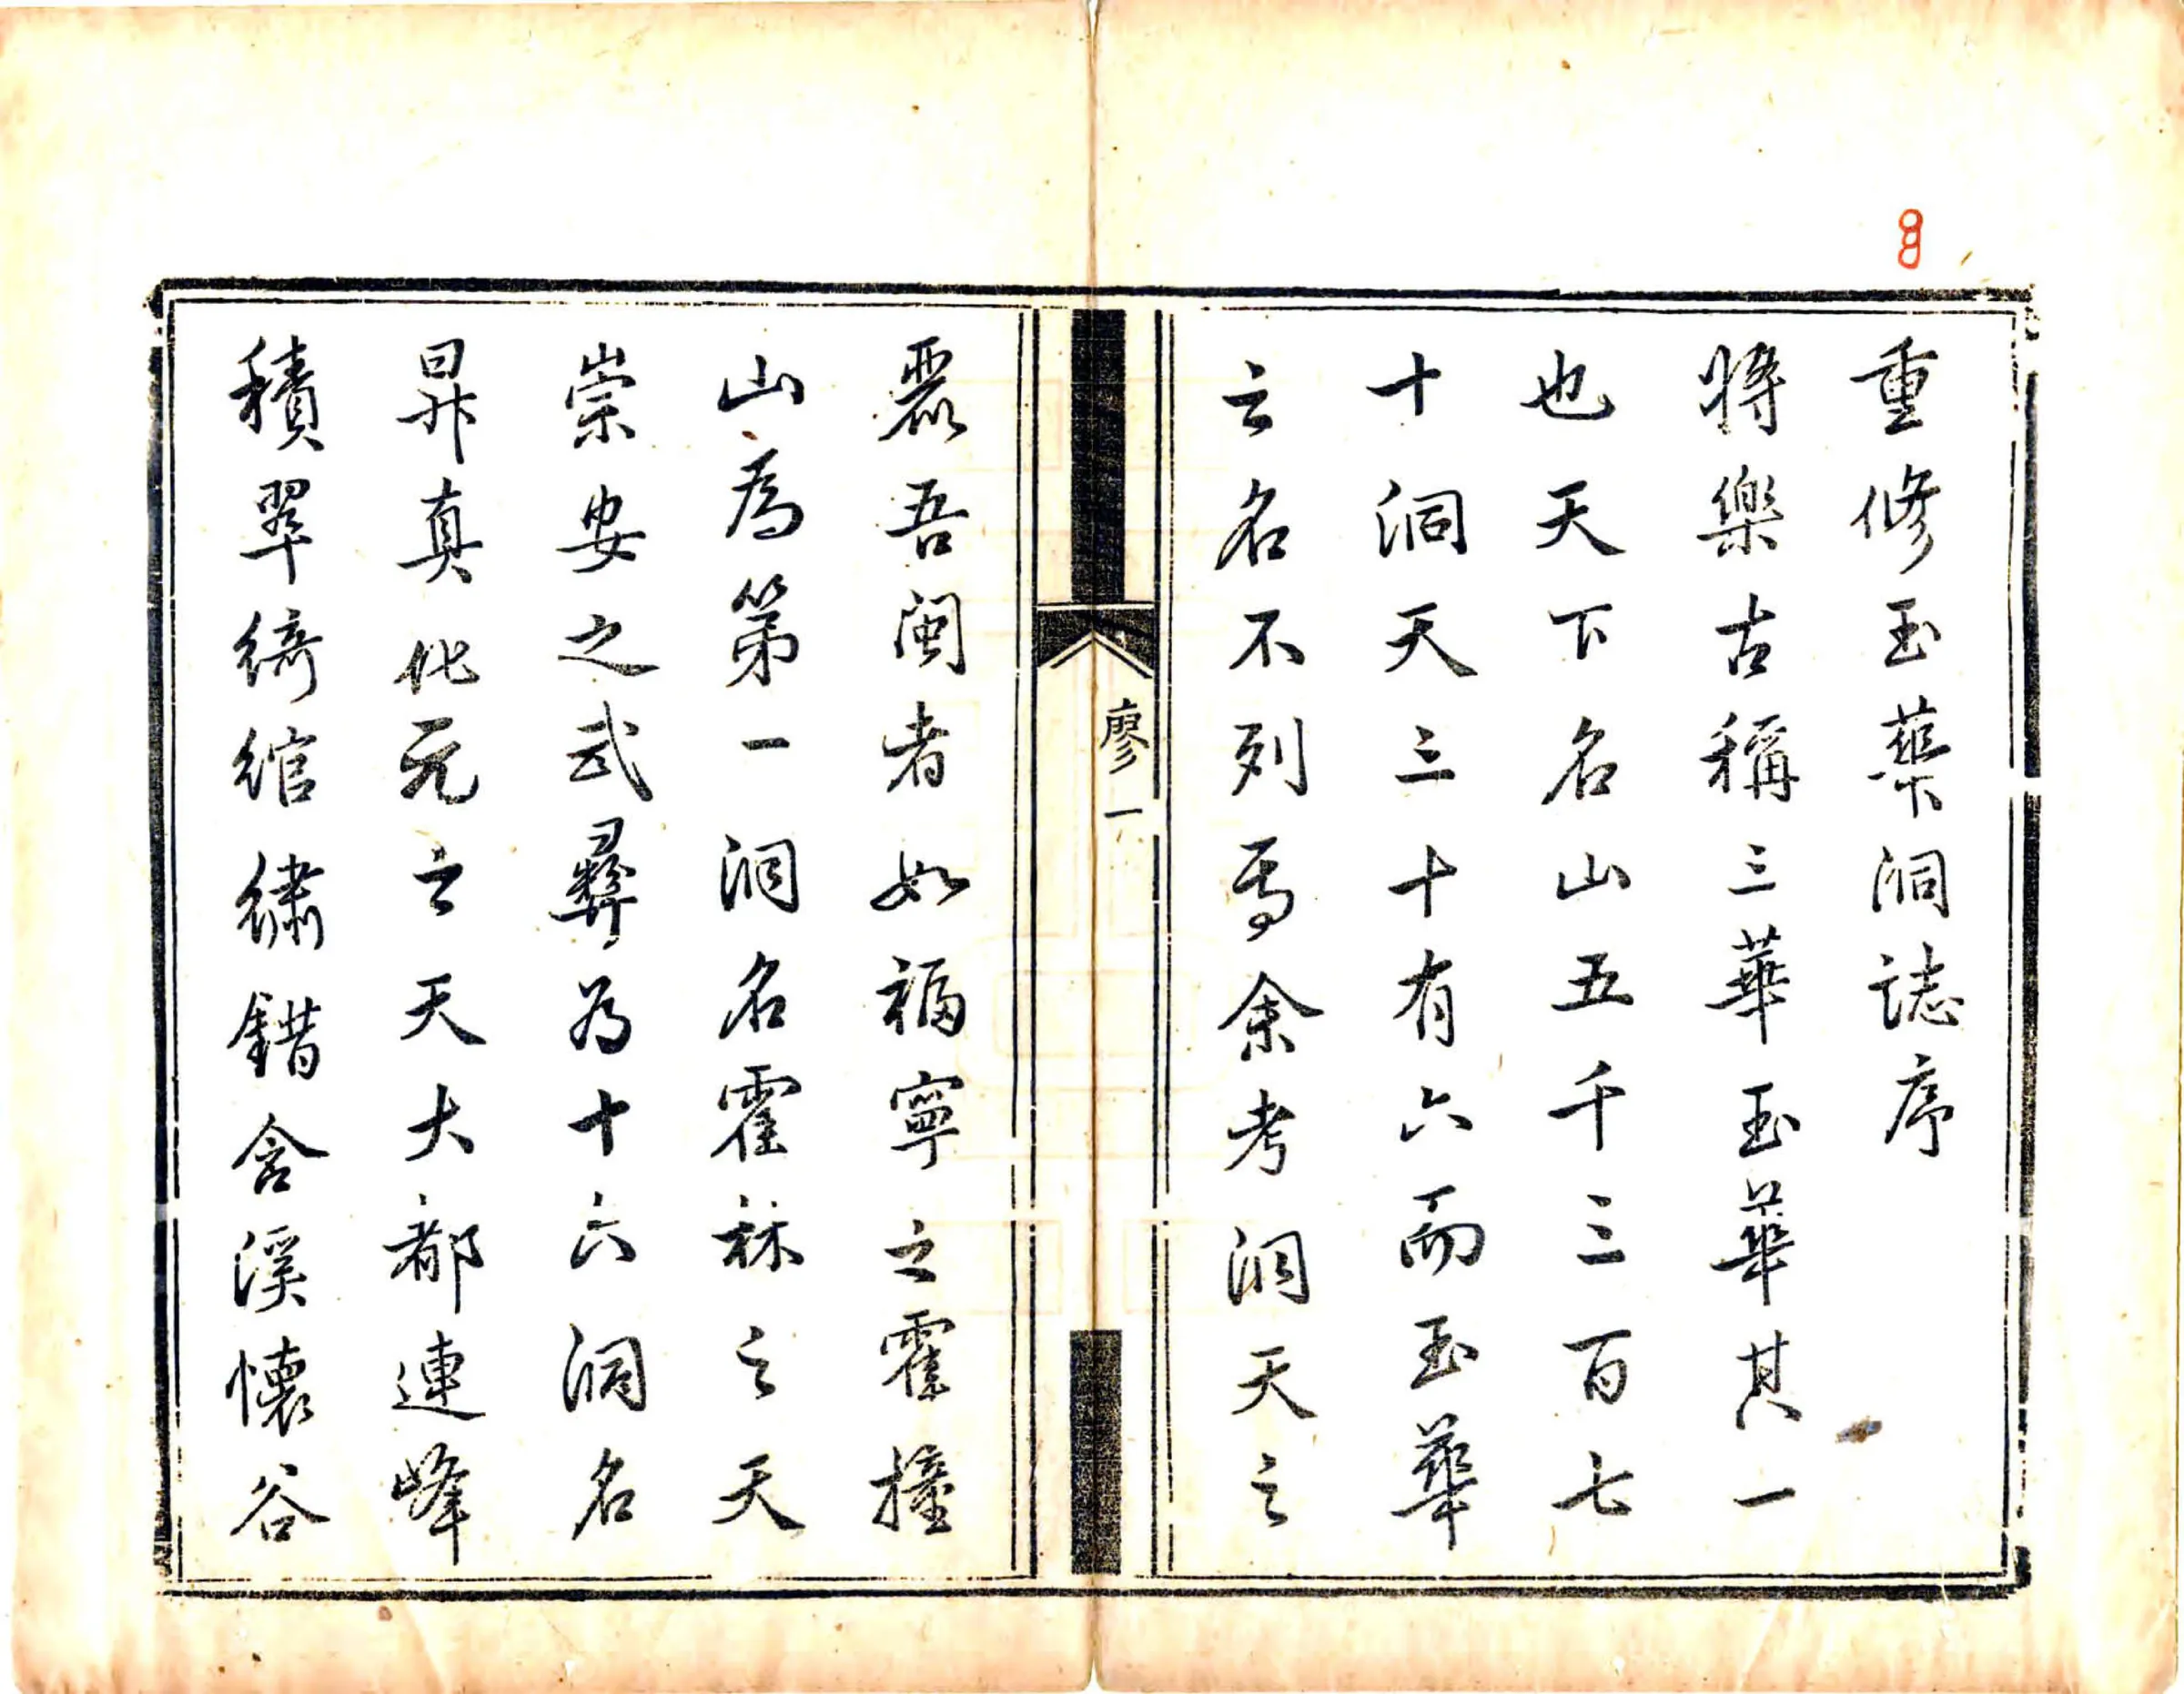 重修玉華洞誌序
將樂古稱三華玉華其一
也天下名山五千三百七
十洞天三十有六而玉華
之名不列焉余考洞天之
麗吾閩者如福寧之霍橦
山為第一洞名霍林之天
崇安之武彝為十六洞名
昇真化元之天大都連峰
積翠綺綰繡錯含溪懷谷
廖一